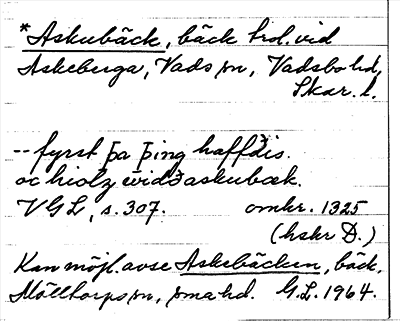 *Askubäck, bäck trol. vid
Askeberga, Vads sn, Vadsbo hd,
Skar. l.
-- fyrst þa þing haffðis.
oc hiolz widð askubæk.
VGL, s. 307. omkr. 1325
(hskr D.)
Kan möjl. avse Askebäcken, bäck,
Mölltorps sn, sma hd. G.L. 1964.